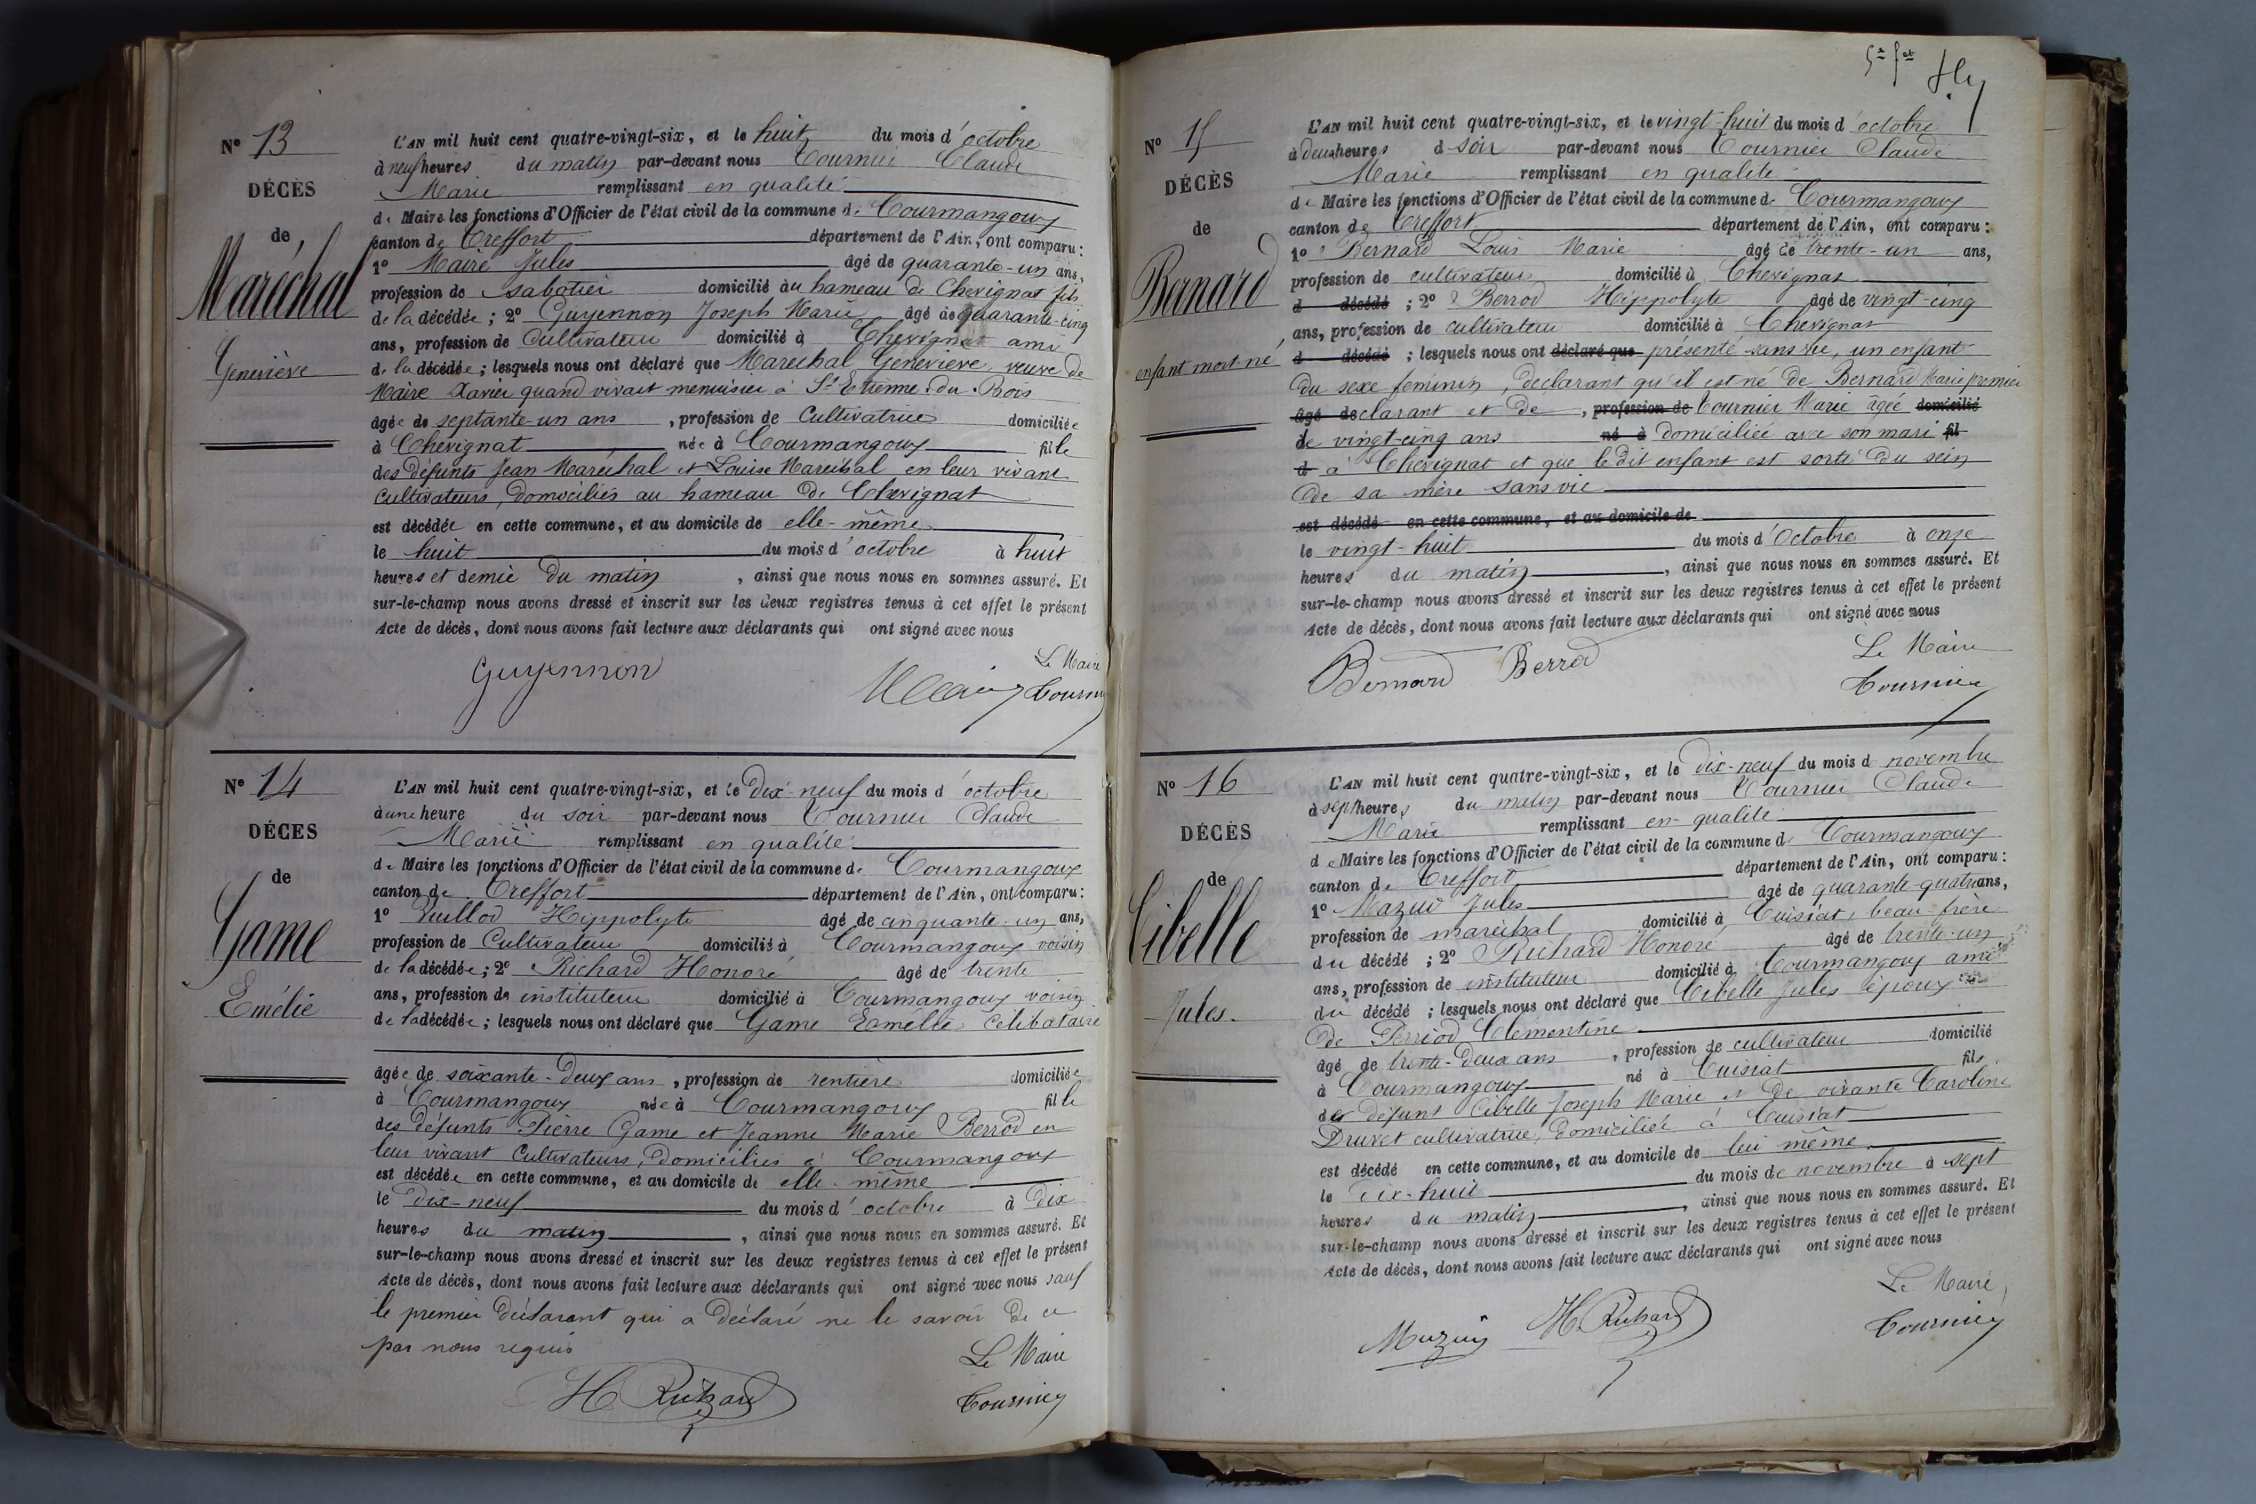 Nº 13
DÉCÈS
de
Maréchal
Geneviève
L'AN mil huit cent quatre-vingt-six, et le huit du mois d'octobre
à neuf heures du matin par-devant nous Tournier Claude
Marie remplissant en qualité
de Maire les fonctions d'Officier de l'état civil de la commune de Courmangoux
canton de Treffort département de l'Ain, ont comparu :
1º Maire Jules âgé de quarante-un ans,
profession de sabotier domicilié au hameau de Chevignat fils
de la décédée ; 2º Guyennon Joseph Marie âgé de quarante-cinq
ans, profession de Cultivateur domicilié à Chevignat ami
de la décédée ; lesquels nous ont déclaré que Maréchal Geneviève, veuve de
Maire Xavier quand vivait menuisier à St Etienne-du-Bois
âgée de septante-un ans, profession de Cultivatrice domiciliée
à Chevignat née à Courmangoux fille
des défunts Jean Maréchal et Louise Maréchal en leur vivant
cultivateurs, domiciliés au hameau de Chevignat
est décédée en cette commune, et au domicile de elle-même
le huit du mois d'octobre à huit
heures et demie du matin, ainsi que nous nous en sommes assuré. Et
sur-le-champ nous avons dressé et inscrit sur les deux registres tenus à cet effet le présent
Acte de décès, dont nous avons fait lecture aux déclarants qui ont signé avec nous
Le Maire
Guyennon Maire Tournier
Nº 14
DÉCES
de
Game
Emélie
L'AN mil huit cent quatre-vingt-six, et le Dix-neuf du mois d'octobre
à une heure du soir par-devant nous Tournier Claude
Marie remplissant en qualité
de Maire les fonctions d'Officier de l'état civil de la commune de Courmangoux
canton de Treffort département de l'Ain, ont comparu :
1º Vuillod Hippolyte âgé de cinquante-un ans,
profession de Cultivateur domicilié à Courmangoux voisin
de la décédée ; 2º Richard Honoré âgé de trente
ans, profession de instituteur domicilié à Courmangoux voisin
de la décédée ; lesquels nous ont déclaré que Game Emélie Célibataire
âgée de soixante-deux ans, profession de rentière domiciliée
à Courmangoux née à Courmangoux fille
des défunts Pierre Game et Jeanne Marie Berrod en
leur vivant Cultivateurs, domiciliés à Courmangoux
est décédée en cette commune, et au domicile de elle-même
le Dix-neuf du mois d'octobre à Dix
heures du matin, ainsi que nous nous en sommes assuré. Et
sur-le-champ nous avons dressé et inscrit sur les deux registres tenus à cet effet le présent
Acte de décès, dont nous avons fait lecture aux déclarants qui ont signé avec nous sauf
le premier déclarant qui a déclaré ne le savoir de ce
par nous requis
Le Maire
H Richard Tournier
Nº 15
DÉCÈS
de
Bernard
enfant mort-né
L'AN mil huit cent quatre-vingt-six, et le vingt-huit du mois d'octobre
à deux heures d soir par-devant nous Tournier Claude
Marie remplissant en qualité
de Maire les fonctions d'Officier de l'état civil de la commune de Courmangoux
canton de Treffort département de l'Ain, ont comparu :
1º Bernard Louis Marie âgé de trente-un ans,
profession de cultivateur domicilié à Chevignat
d décédé ; 2º Berrod Hippolyte âgé de vingt-cinq
ans, profession de cultivateur domicilié à Chevignat
d décédé ; lesquels nous ont déclaré que présenté sans vie, un enfant
du sexe féminin, déclarant qu'il est né de Bernard Marie premier
âgé de clarant et de, profession de Tournier Marie âgée domicilié
de vingt-cinq ans né à domiciliée avec son mari fil
d à Chevignat et que le dit enfant est sorti du sein
de sa mère sans vie
est décédé en cette commune, et au domicile de
le vingt-huit du mois d'Octobre à onze
heures du matin, ainsi que nous nous en sommes assuré. Et
sur-le-champ nous avons dressé et inscrit sur les deux registres tenus à cet effet le présent
Acte de décès, dont nous avons fait lecture aux déclarants qui ont signé avec nous
Le Maire
Bernard Berrod Tournier
Nº 16
DÉCÈS
de
Cibelle
Jules.
L'AN mil huit cent quatre-vingt-six, et le dix-neuf du mois d novembre
à sept heures du matin par-devant nous Tournier Claude
Marie remplissant en qualité
de Maire les fonctions d'Officier de l'état civil de la commune d Courmangoux
canton de Treffort département de l'Ain, ont comparu :
1º Mazuir Jules âgé de quarante-quatre ans,
profession de maréchal domicilié à Cuisiat, beau-frère
du décédé ; 2º Richard Honoré âgé de trente-un
ans, profession de instituteur domicilié à Courmangoux ami
du décédé ; lesquels nous ont déclaré que Cibelle Jules époux
de Perriod Clémentine
âgé de trente-deux ans, profession de cultivateur domicilié
à Courmangoux né à Cuisiat fils
des défunt Cibelle Joseph Marie et de vivante Caroline
Druvet cultivatrice, domiciliée à Cuisiat
est décédé en cette commune, et au domicile de lui même
le Dix-huit du mois de novembre à sept
heures du matin, ainsi que nous nous en sommes assuré. Et
sur-le-champ nous avons dressé et inscrit sur les deux registres tenus à cet effet le présent
Acte de décès, dont nous avons fait lecture aux déclarants qui ont signé avec nous
Le Maire
Mazuir H. Richard Tournier